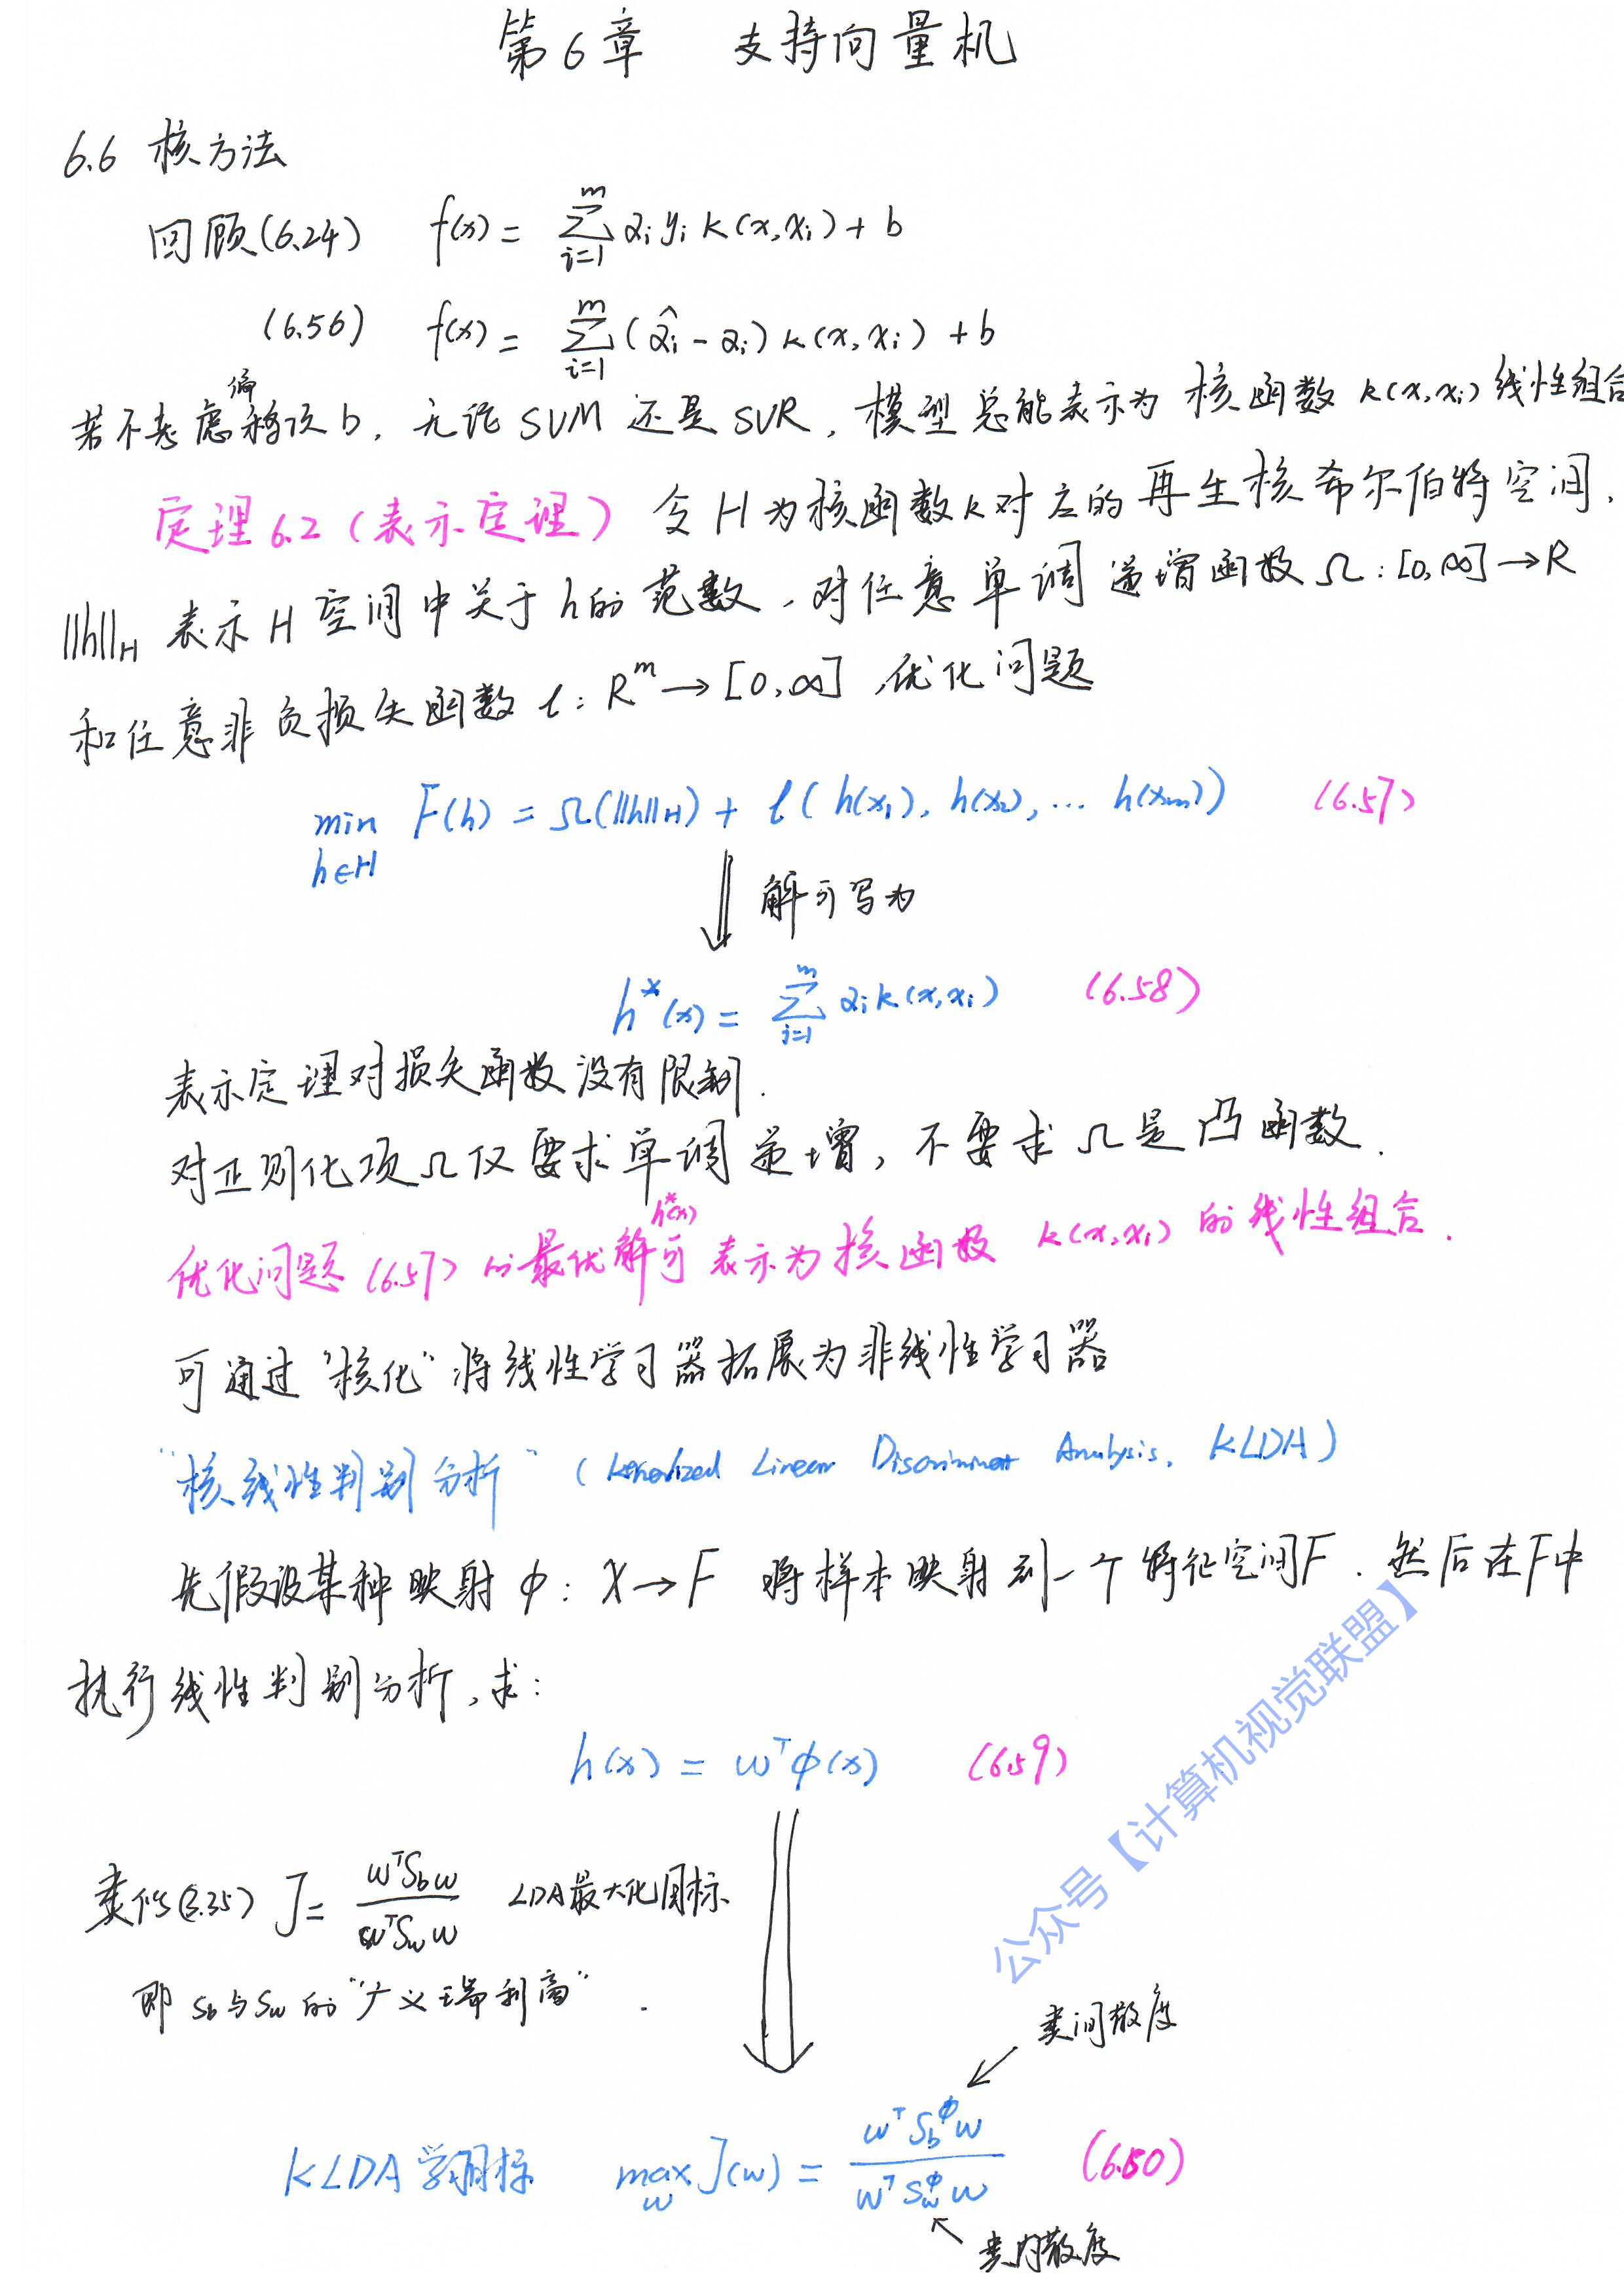 第6章 支持向量机
6.6 核方法
回顾(6.24) f(x) = ∑_{i=1}^{m} α_i y_i k(x, x_i) + b
(6.56) f(x) = ∑_{i=1}^{m} (α̂_i - α_i) k(x, x_i) + b
若不考虑偏移项b, 无论SVM还是SVR, 模型总能表示为核函数k(x, x_i)线性组合
定理6.2(表示定理) 令H为核函数k对应的再生核希尔伯特空间,
||h||_H 表示H空间中关于h的范数, 对任意单调递增函数Ω: [0, ∞] → R
和任意非负损失函数ℓ: R^m → [0, ∞], 优化问题
min_{h∈H} F(h) = Ω(||h||_H) + ℓ(h(x_1), h(x_2), ... h(x_m)) (6.57)
⇓ 解可写为
h*(x) = ∑_{i=1}^{m} α_i k(x, x_i) (6.58)
表示定理对损失函数没有限制.
对正则化项Ω仅要求单调递增, 不要求Ω是凸函数.
优化问题(6.57)的最优解h*(x)可表示为核函数k(x, x_i)的线性组合.
可通过"核化"将线性学习器拓展为非线性学习器
"核线性判别分析" (Kernelized Linear Discriminant Analysis, KLDA)
先假设某种映射φ: X → F 将样本映射到一个特征空间F. 然后在F中
执行线性判别分析, 求:
h(x) = w^T φ(x) (6.59)
类似(3.35) J = w^T S_b w / w^T S_w w LDA最大化目标
即S_b与S_w的"广义瑞利商".
类间散度
KLDA学习目标 max_w J(w) = w^T S_b^φ w / w^T S_w^φ w (6.60)
类内散度
公众号【计算机视觉联盟】